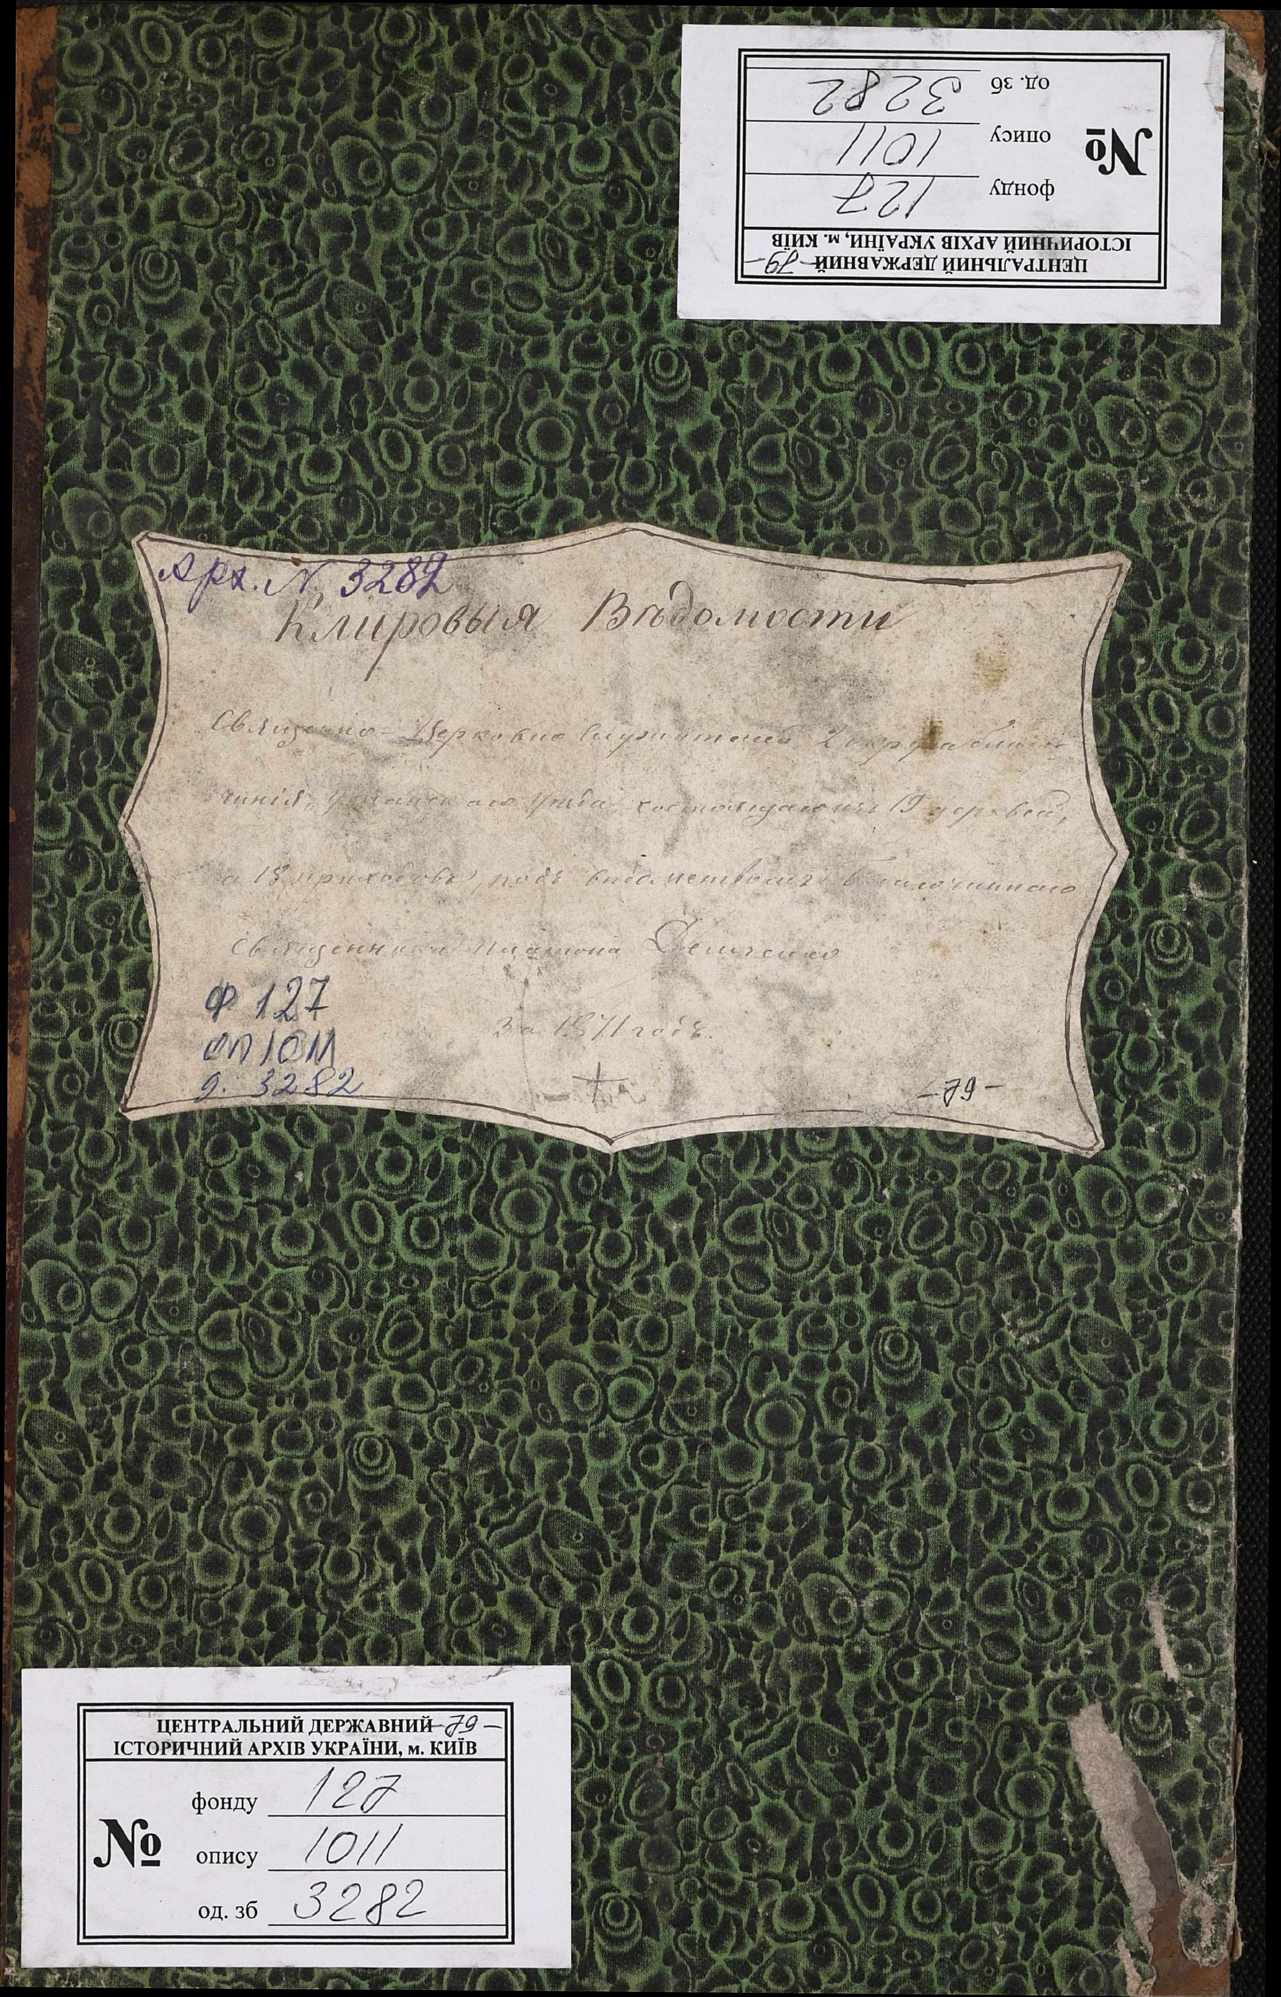 ЦЕНТРАЛЬНИЙ ДЕРЖАВНИЙ -79-
ІСТОРИЧНИЙ АРХІВ УКРАЇНИ, м. КИЇВ
№
фонду 127
опису 1011
од. зб 3282
Арх. N 3282
Клировыя Вѣдомости
Священно-Церковно служителей 2 округа благо-
чинія, Уманскаго уѣзда
а 18 приходовъ, подъ вѣдомствомъ Благочиннаго
Священника Платона
За 1871 годъ.
ф 127
оп 1011
д. 3282
-79-
ЦЕНТРАЛЬНИЙ ДЕРЖАВНИЙ -79-
ІСТОРИЧНИЙ АРХІВ УКРАЇНИ, м. КИЇВ
№
фонду 127
опису 1011
од. зб 3282